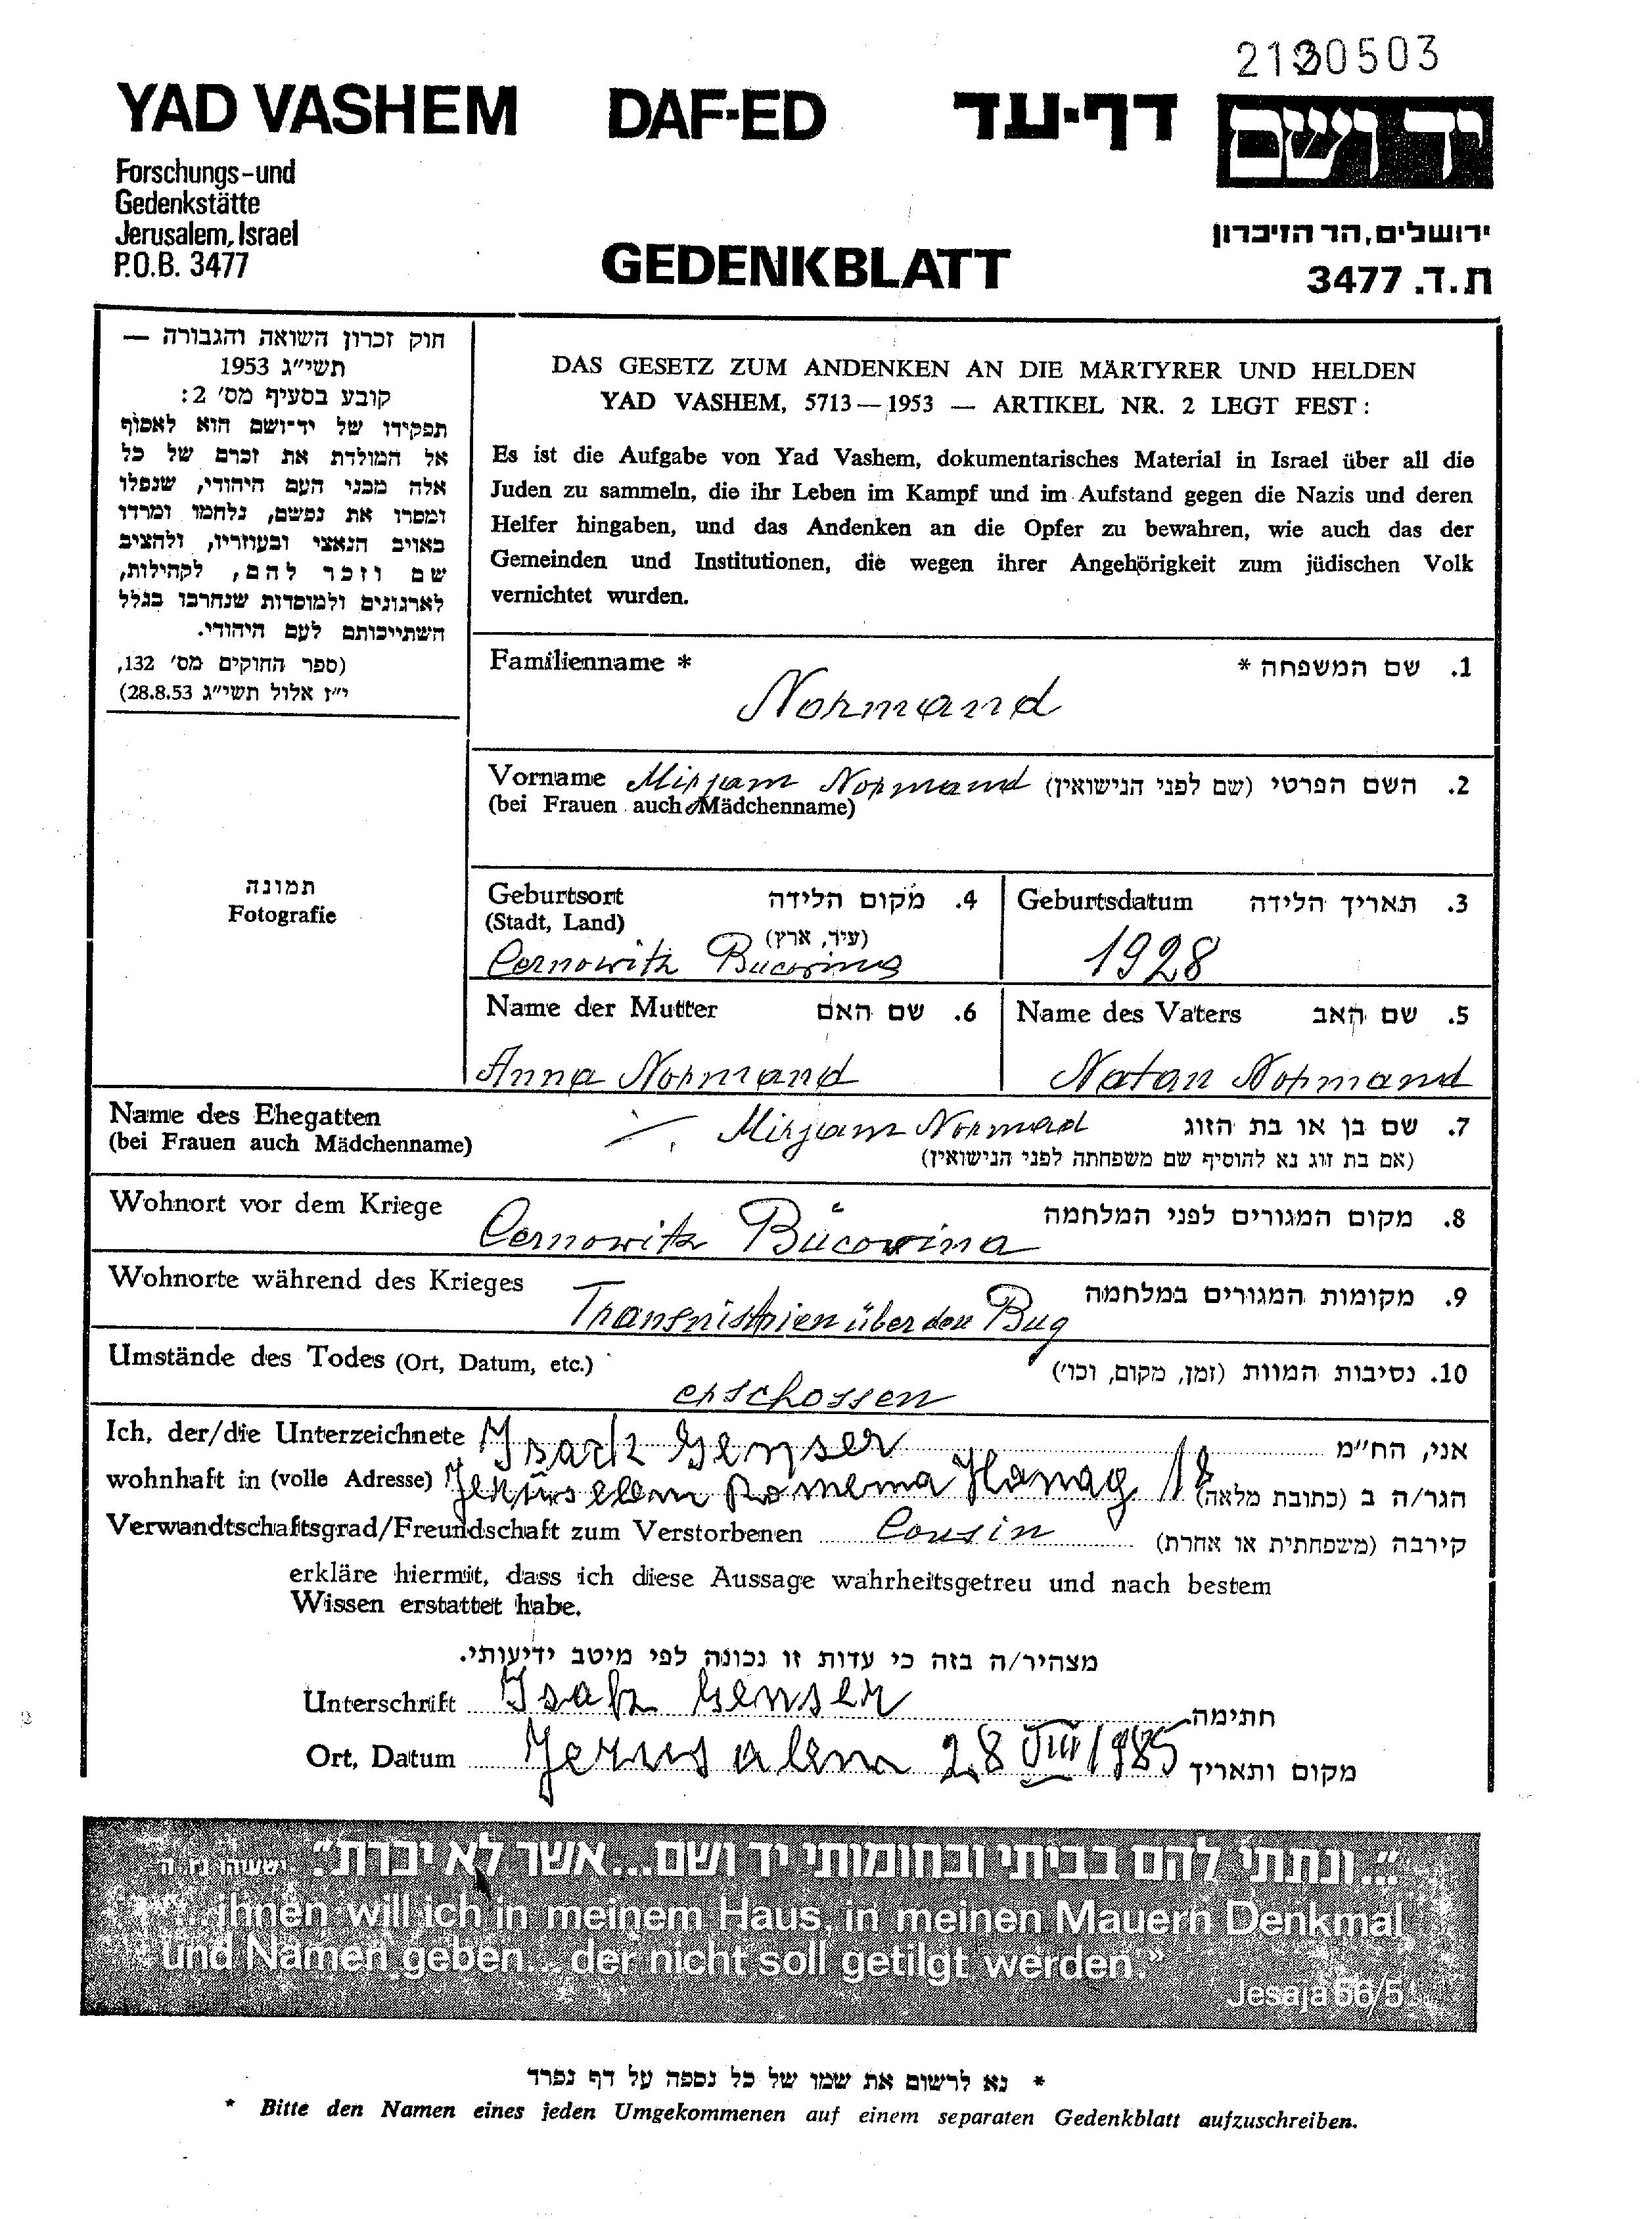 2130503
YAD VASHEM DAF-ED דף-עד יד ושם
Forschungs-und
Gedenkstätte
Jerusalem, Israel
P.O.B. 3477
GEDENKBLATT
ירושלים, הר הזיכרון
ת.ד. 3477
חוק זכרון השואה והגבורה —
תשי"ג 1953
קובע בסעיף מס' 2:
תפקידו של יד-ושם הוא לאסוף
אל המולדת את זכרם של כל
אלה מבני העם היהודי, שנפלו
ומסרו את נפשם, נלחמו ומרדו
באויב הנאצי ובעוזריו, ולהציב
שם וזכר להם, לקהילות,
לארגונים ולמוסדות שנחרבו בגלל
השתייכותם לעם היהודי.
(ספר החוקים מס' 132,
י"ז אלול תשי"ג 28.8.53)
DAS GESETZ ZUM ANDENKEN AN DIE MÄRTYRER UND HELDEN
YAD VASHEM, 5713—1953 — ARTIKEL NR. 2 LEGT FEST:
Es ist die Aufgabe von Yad Vashem, dokumentarisches Material in Israel über all die
Juden zu sammeln, die ihr Leben im Kampf und im Aufstand gegen die Nazis und deren
Helfer hingaben, und das Andenken an die Opfer zu bewahren, wie auch das der
Gemeinden und Institutionen, die wegen ihrer Angehörigkeit zum jüdischen Volk
vernichtet wurden.
Familienname * 1. שם המשפחה *
Normand
Vorname Mirjam Normand 2. השם הפרטי (שם לפני הנישואין)
(bei Frauen auch Mädchenname)
תמונה
Fotografie
Geburtsort 4. מקום הלידה
(Stadt, Land) (עיר, ארץ)
Cernowitz Bucovina
Geburtsdatum 3. תאריך הלידה
1928
Name der Mutter 6. שם האם
Anna Normand
Name des Vaters 5. שם האב
Natan Normand
Name des Ehegatten Mirjam Normad 7. שם בן או בת הזוג
(bei Frauen auch Mädchenname) (אם בת זוג נא להוסיף שם משפחתה לפני הנישואין)
Wohnort vor dem Kriege 8. מקום המגורים לפני המלחמה
Cernowitz Bucovina
Wohnorte während des Krieges 9. מקומות המגורים במלחמה
Transnistrien über den Bug
Umstände des Todes (Ort, Datum, etc.) 10. נסיבות המוות (זמן, מקום, וכו')
erschossen
Ich, der/die Unterzeichnete Isack Genser אני, הח"מ
wohnhaft in (volle Adresse) Jerusalem Romema 18 הגר/ה ב (כתובת מלאה)
Verwandtschaftsgrad/Freundschaft zum Verstorbenen Cousin קירבה (משפחתית או אחרת)
erkläre hiermit, dass ich diese Aussage wahrheitsgetreu und nach bestem
Wissen erstattet habe.
מצהיר/ה בזה כי עדות זו נכונה לפי מיטב ידיעותי.
Unterschrift Isak Genser חתימה
Ort, Datum Jerusalem 28 VIII 1985 מקום ותאריך
"...ונתתי להם בביתי ובחומותי יד ושם...אשר לא יכרת" ישעהו נו, ה
"...ihnen will ich in meinem Haus, in meinen Mauern Denkmal
und Namen geben... der nicht soll getilgt werden."
Jesaja 56/5
* נא לרשום את שמו של כל נספה על דף נפרד
* Bitte den Namen eines jeden Umgekommenen auf einem separaten Gedenkblatt aufzuschreiben.